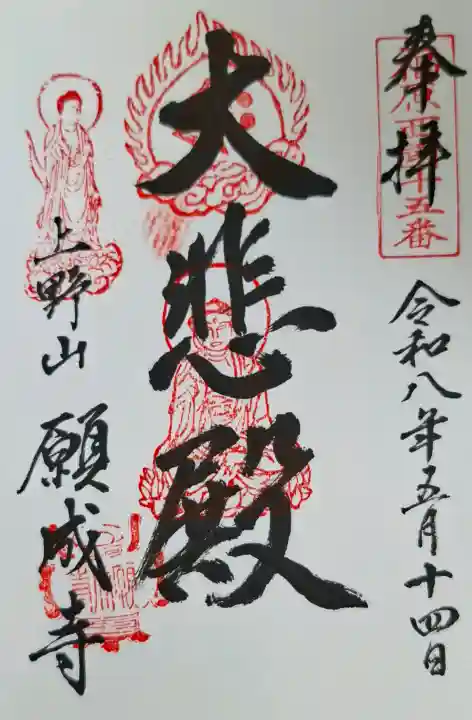 奉拝
十五番
令和八年五月十四日
大悲殿
上野山
願成寺